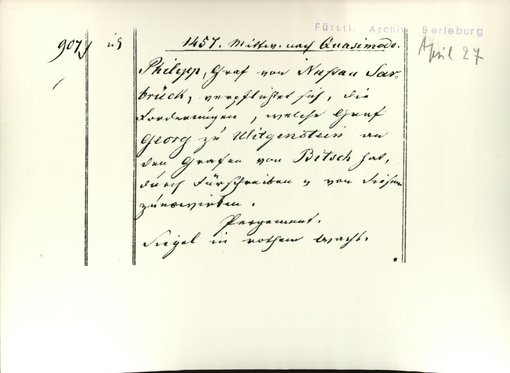 Fürstl. Archiv Berleburg
907, 1457. Mittw. nach Quasimodo. April 27
Philipp, Graf von Nassau Sar-
brück, verpflichtet sich, die
Forderungen, welche Graf
Georg zu Witgenstein an
den Grafen von Bitsch hat,
durch Fürschreiben u von diesem
Pergament.
Siegel in rothem Wachs.